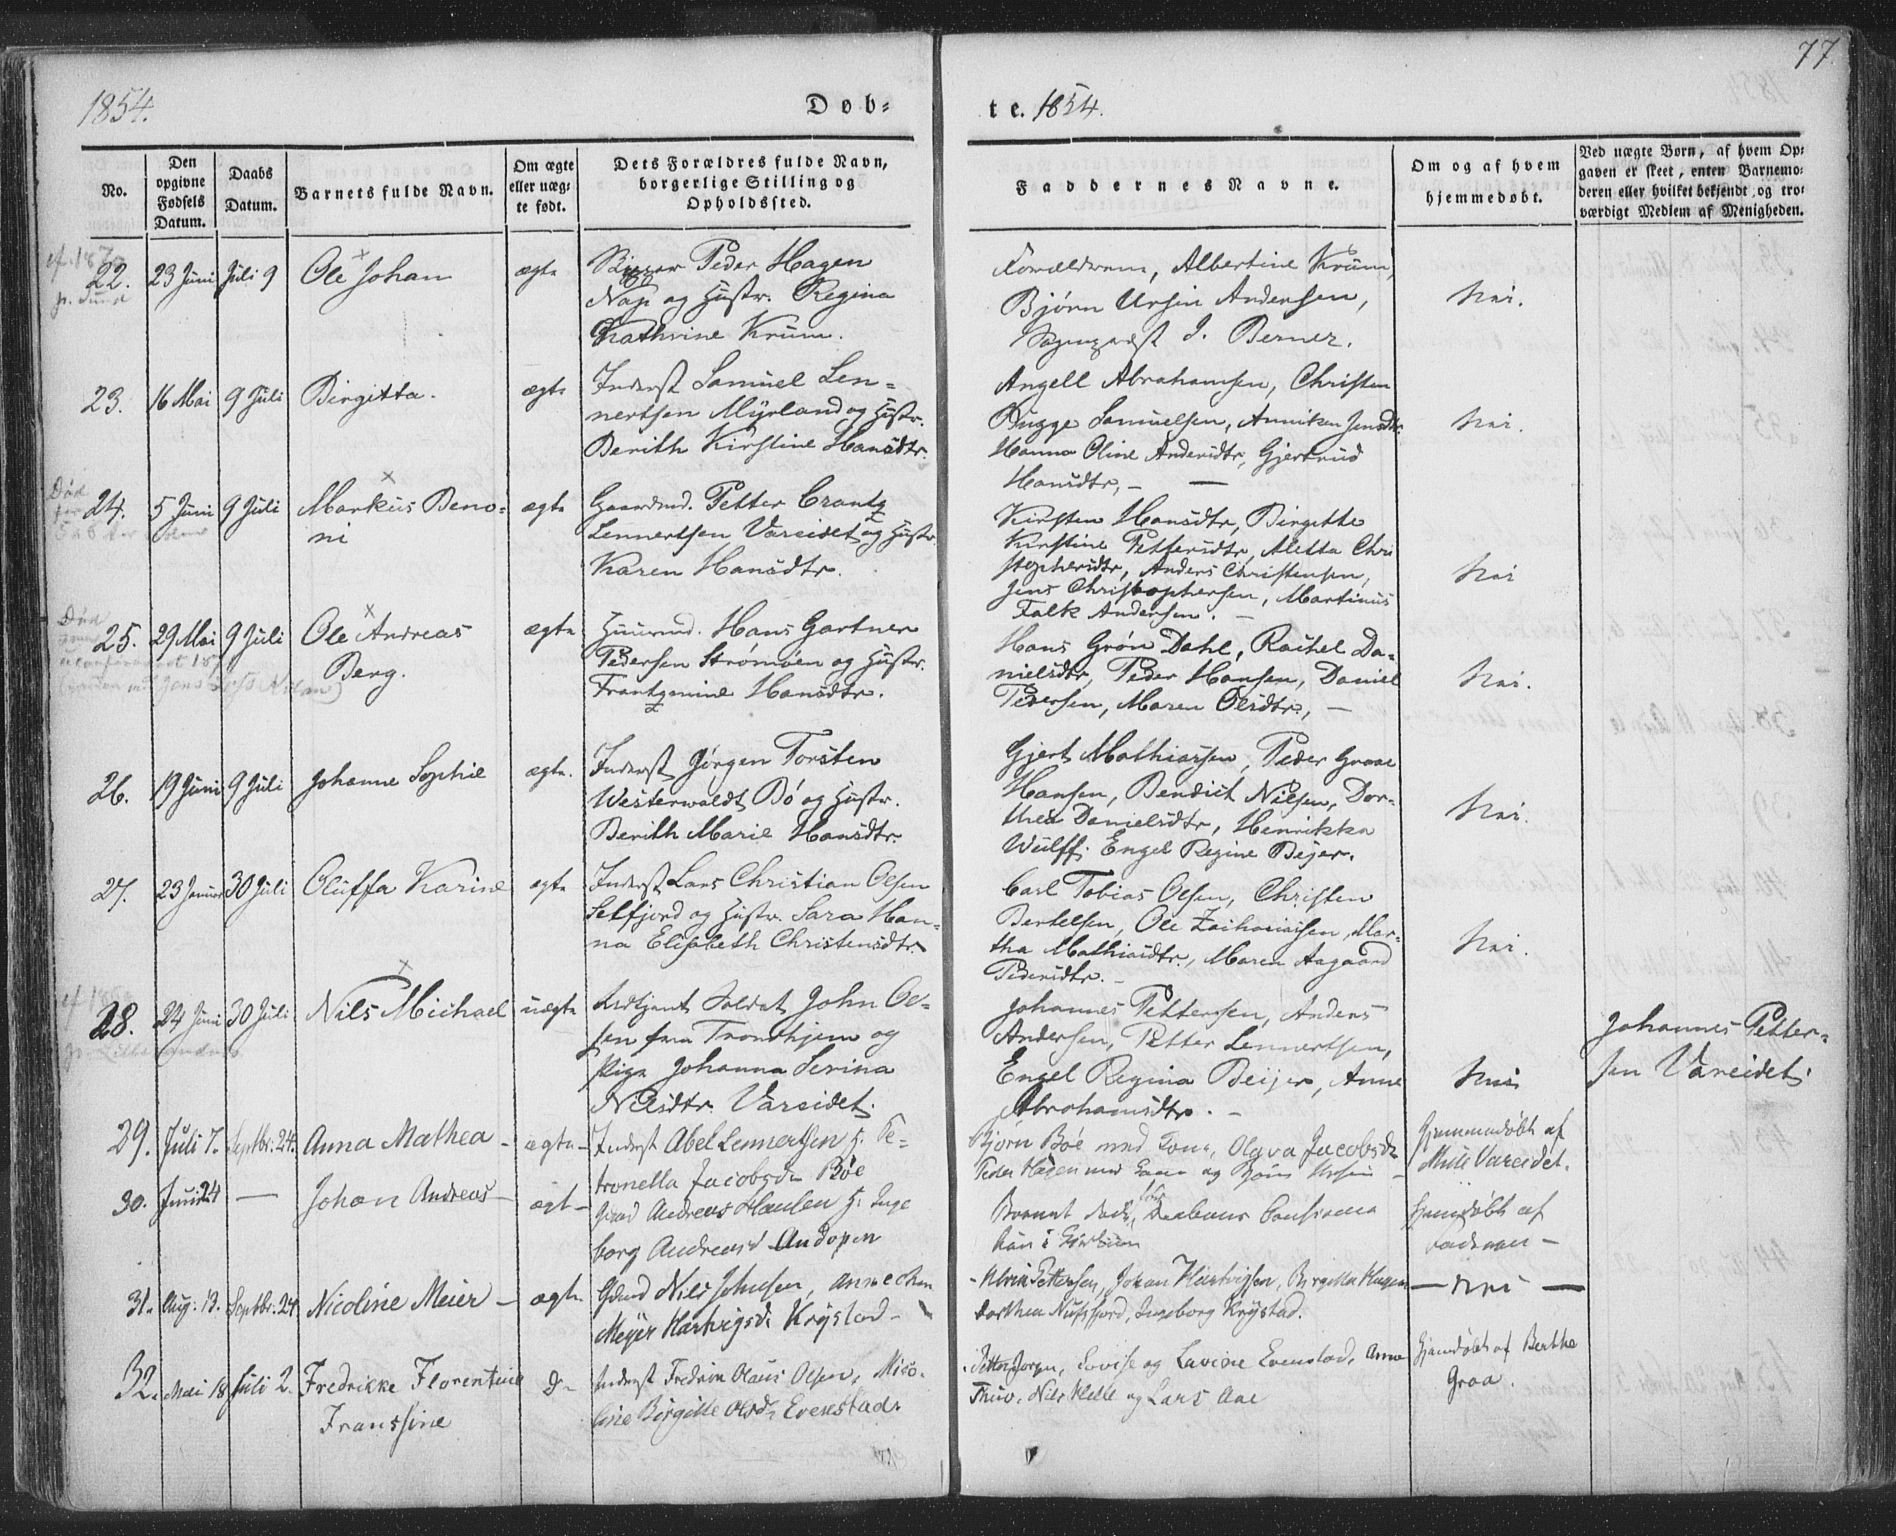 77
1854.
Døb-
te. 1854.
No.
Den opgivne Fødsels Datum.
Daabs Datum.
Barnets fulde Navn.
Om ægte eller uægte født.
Dets Forældres fulde Navn, borgerlige Stilling og Opholdssted.
Faddernes Navne.
Om og af hvem hjemmedøbt.
Ved uægte Børn, af hvem Opgaven er skeet, enten Barnemoderen eller hvilket bekjendt og troværdigt Medlem af Menigheden.
22. 23 Juni Juli 9 Ole Johan ægte
Peder Hagen
Nap og Hustr. Regina
Kathrine Krüm.
Forældrene, Albertine Krüm,
Bjørn Ursin Andersen,
J. Berner.
Nei.
23. 16 Mai 9 Juli Birgitta. ægte
Inderst Samuel Len-
nertsen Myrland og Hustr.
Berith Kirstine Hansdtr.
Angell Abrahamsen, Christen
Bugge Samuelsen, Anniken Jensdtr.
Hanna Oline Andersdtr, Gjertrud
Hansdtr, —
Nei.
24. 5 Juni 9 Juli Markus Beno-
ni
ægte
Gaardmd. Petter Crantz
Lennertsen Vareidet og Hustr.
Karen Hansdtr.
Kirsten Hansdtr, Birgitte
Kirstine Pettersdtr, Aletta Chri
stophersdtr, Anders Christensen,
Jens Christophersen, Martinus
Falk Andersen. —
Nei
Død
25. 29 Mai 9 Juli Ole Andreas
Berg.
ægte
Huusmd. Hans Gartner
Pedersen Strømøen og Hustr.
Frantzmine Hansdtr.
Hans Grøn Dahl, Rachel Da-
nielsdtr, Peder Hansen, Daniel
Pedersen, Maren Olsdtr, —
Nei.
Død
26. 19 Juni 9 Juli Johanne Sophie ægte.
Inderst Jørgen Torsten
Westerwaldt Bö og Hustr.
Berith Marie Hansdtr.
Gjert Mathiassen, Peder Graae
Hansen, Bendict Nilsen, Dor-
thea Danielsdtr, Henrikka
Wulff, Engel Regine Beyer.
Nei.
27. 23 Januar 30 Juli Oluffa Karine ægte
Inderst Lars Christian Olsen
Selfjord og Hustr. Sara Han-
na Elisabeth Christensdtr.
Carl Tobias Olsen, Christen
Bertelsen, Ole Zachariasen, Mar-
tha Mathiasdtr., Maren Aagaard
Pedersdtr. —
Nei.
28. 24 Juni 30 Juli Nils Michael uægte
Soldat John Ol-
sen fra Trondhjem og
Pige Johanna Serina
Nilsdtr. Vareidet.
Johannes Pettersen, Anders
Andersen, Petter Lennertsen,
Engel Regina Beijer, Anne
Abrahamsdtr. —
Nei
Johannes Petter-
sen Vareidet.
29. Juli 7. Septbr. 24. Anna Mathea - ægte -
Inderst Abel Lennertsen H. Pe-
tronella Jacobsd. Böe
Bjørn Böe med Kone, Olava Jacobsd
Peder Hagen med
Hjemmedøbt af
Mille Vareidet.
30. Juni 24 — Johan Andreas - ægt -
Gmd Andreas Hansen H. Inge
borg Andreasd Andopen
Hjemmedøbt af
31. Aug. 13. Septbr. 24. Nicoline Meier - ægte
Gmd Nils Johnsen, Annechen
Meyer Hartvigsd. Krystad -
Ulrik Pettersen, Johan Hartvigsen, Birgitte Hagen
Dorthea Nufsfjord, Ingeborg Krystad.
— Nei —
32. Mai 18 Juli 2. Fredrikke Florentine
Franssine
D-
Inderst Fredrik Olaus Olsen, Nico-
line Birgitte Olsd. Evenstad.
Petter Jorgen, Lovise og Lavine Evenstad, Anne
Thuv, Nils Kelle og Lars Aae
Hjemdøbt af Berthe
Graa.